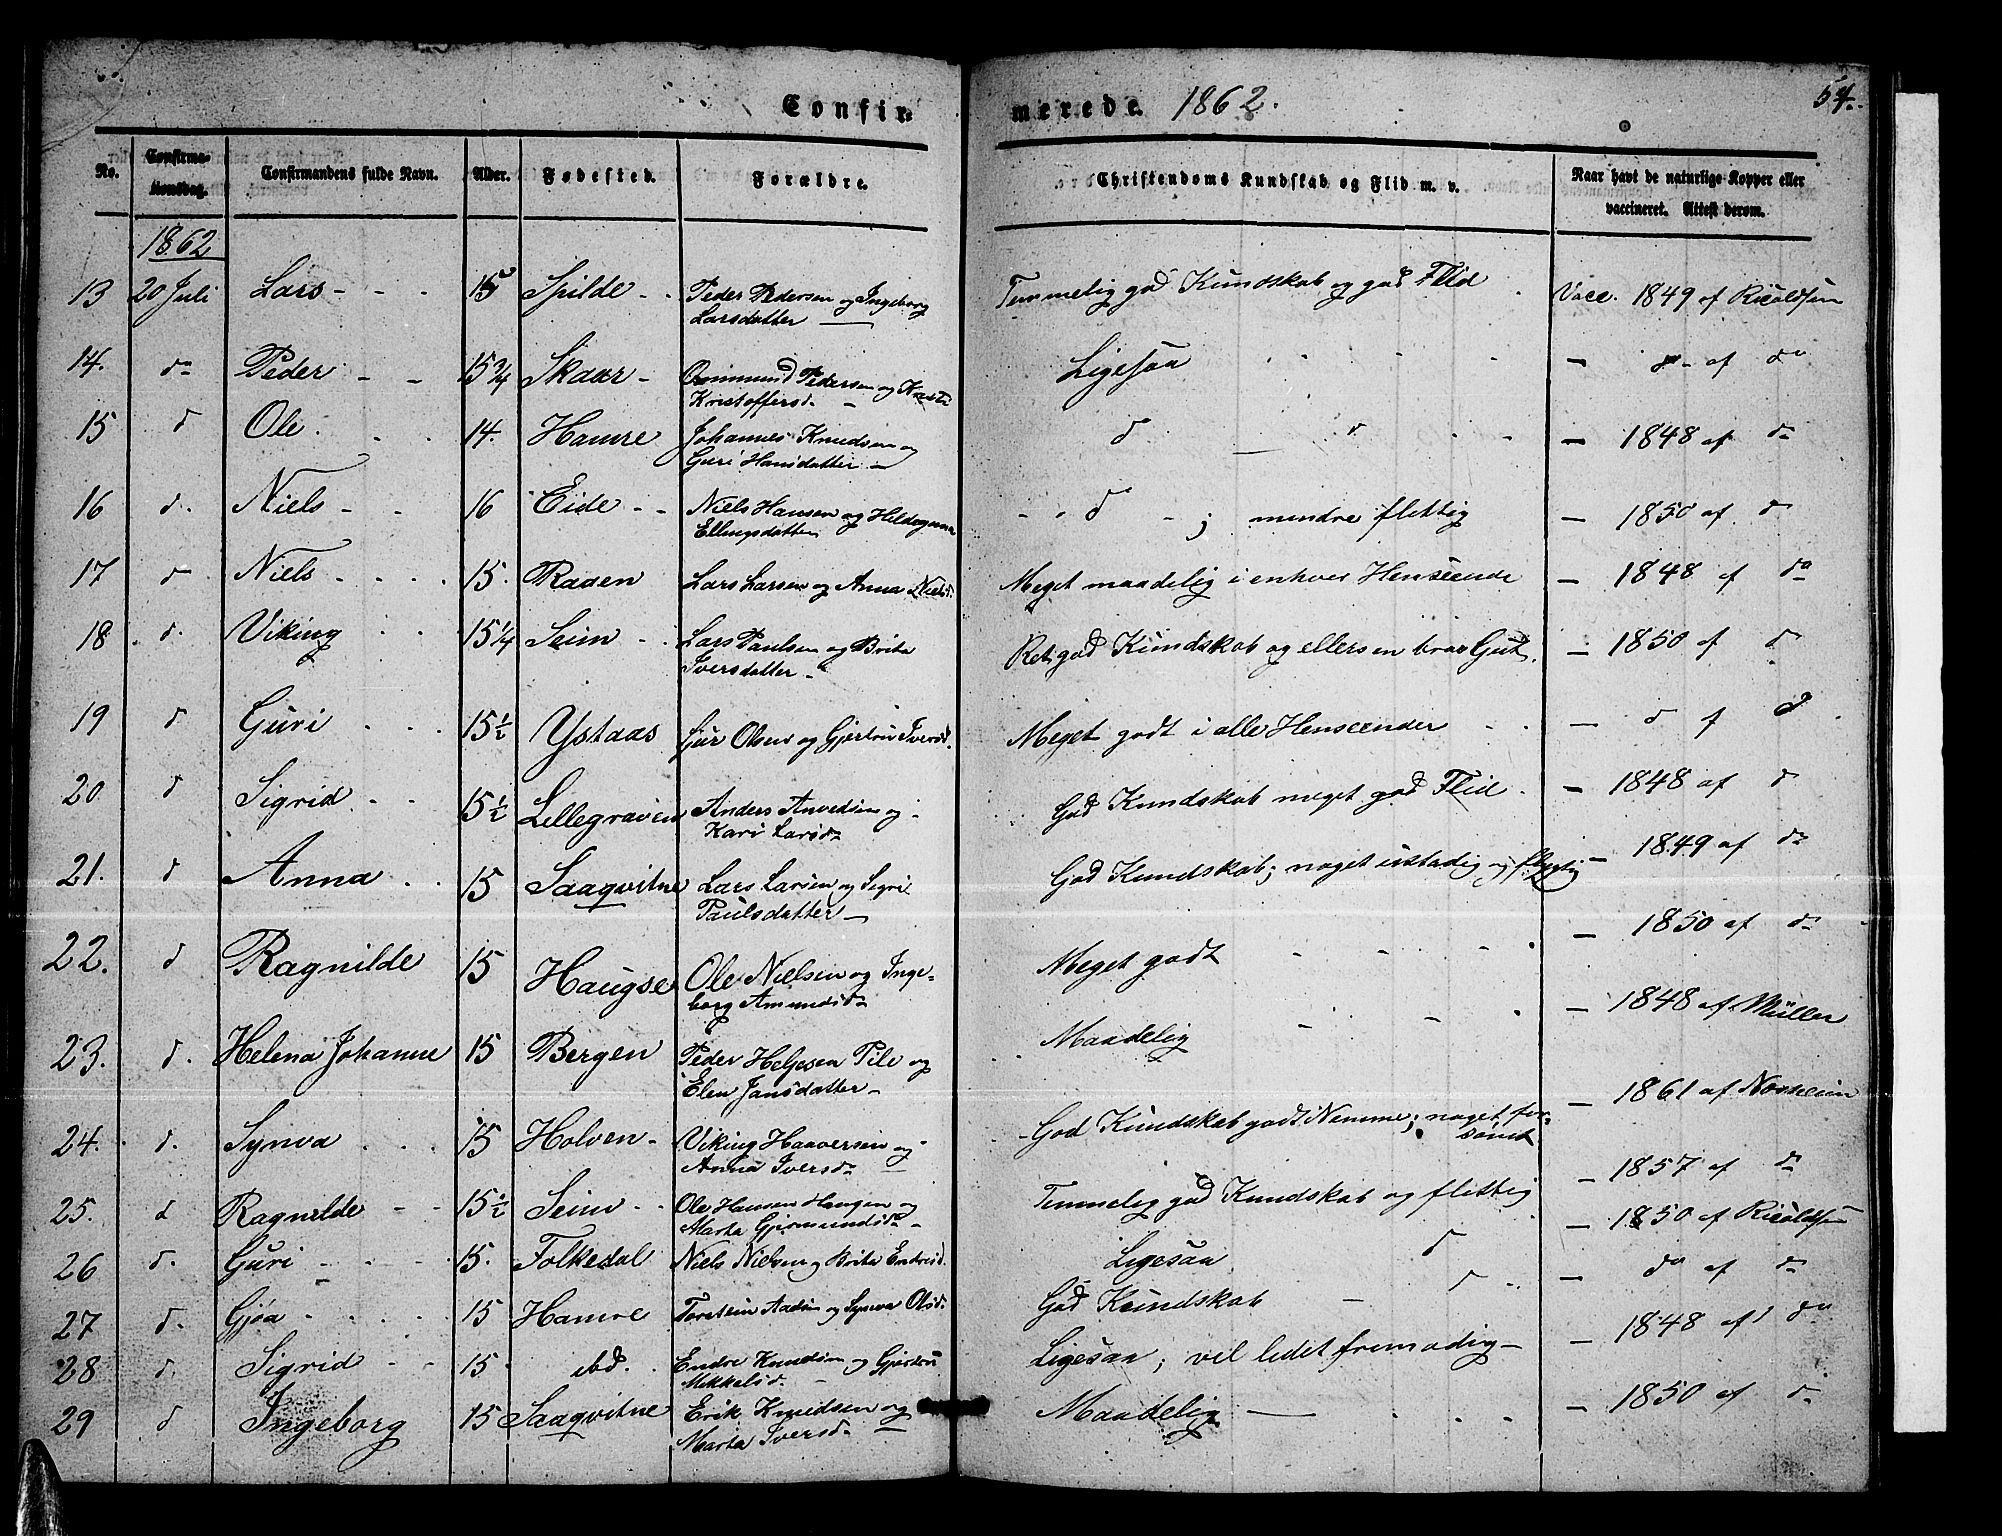 Confir-
merede 1862.
54.
No.
Confirma-
tionsdag.
Confirmandens fulde Navn.
Alder.
Fødested.
Forældre.
Christendoms Kundskab og Flid m. v.
Naar havt de naturlige Kopper eller
vaccineret. Attest derom.
1862
13 20 Juli Lars 15 Spilde Peder Pedersen og Ingeborg Temmelig god Kundskab og god Flid Vacc. 1849 af Ricoldsen
Larsdatter
14. do Peder 15 3/4 Skaar Ommund Pedersen og Ligesaa — do af do
Kristoffersd.
15 d Ole 14. Hamre Johannes Knudsen og d d — 1848 af do
Guri Hansdatter
16 d. Niels 16 Eide Niels Hansen og Hildegunna d ; mindre flittig — 1850 af d
Ellingsdatter
17 d Niels 15. Raaen Lars Larsen og Anna Nielsd. Meget maadelig i enhver Henseende — 1848 af do
18 d. Viking 15 1/4 Seim Lars Paulsen og Brita Ret god Kundskab og ellers en brav Gut. — 1850 af d
Iversdatter
19 d Guri 15 1/2 Ystaas Sjur Olsen og Gjertru Iversd. Meget godt i alle Henseender — d f d
20 d Sigrid 15 1/2 Lillegraven Anders Arvedsen og God Kundskab meget god Flid. — 1848 af d
Kari Larsd
21. d Anna 15 Saaqvitne Lars Larsen og Sigri God Kundskab; noget ustadig og flygtig — 1849 af do
Paulsdatter
22. d Ragnilde 15 Haugse Ole Nielsen og Inge- Meget godt — 1850 af do
borg Amundsd
23. d. Helena Johanne 15 Bergen Peder Helgesen Pile og Maadelig — 1848 af Müller
Elen Jansdatter
24. d. Synva 15 Holven Viking Haaversen og God Kundskab godt Nemme; noget for- — 1861 af Norheim
Anna Iversd sømt
25. d Ragnilde 15 1/2 Seim Ole Hansen Haugen og Temmelig god Kundskab og flittig — 1857 af do
Marta Gjermundsd — 1850 af Ricoldsen
26 d. Guri 15. Folkedal Niels Nielsen og Brita Endresd. Ligesaa d — do af do
27 d. Gjøa 15 Hamre Torstein Aadsen og Synva Olsd. God Kundskab d — 1848 af do
28 d. Sigrid 15 ibd. Endre Knudsen og Gjertru Ligesaa; vel ledet fremadig
Mikkelsd.
29 d Ingeborg 15 Saaqvitne Erik Knudsen og Maadelig — 1850 af d
Marta Iversd